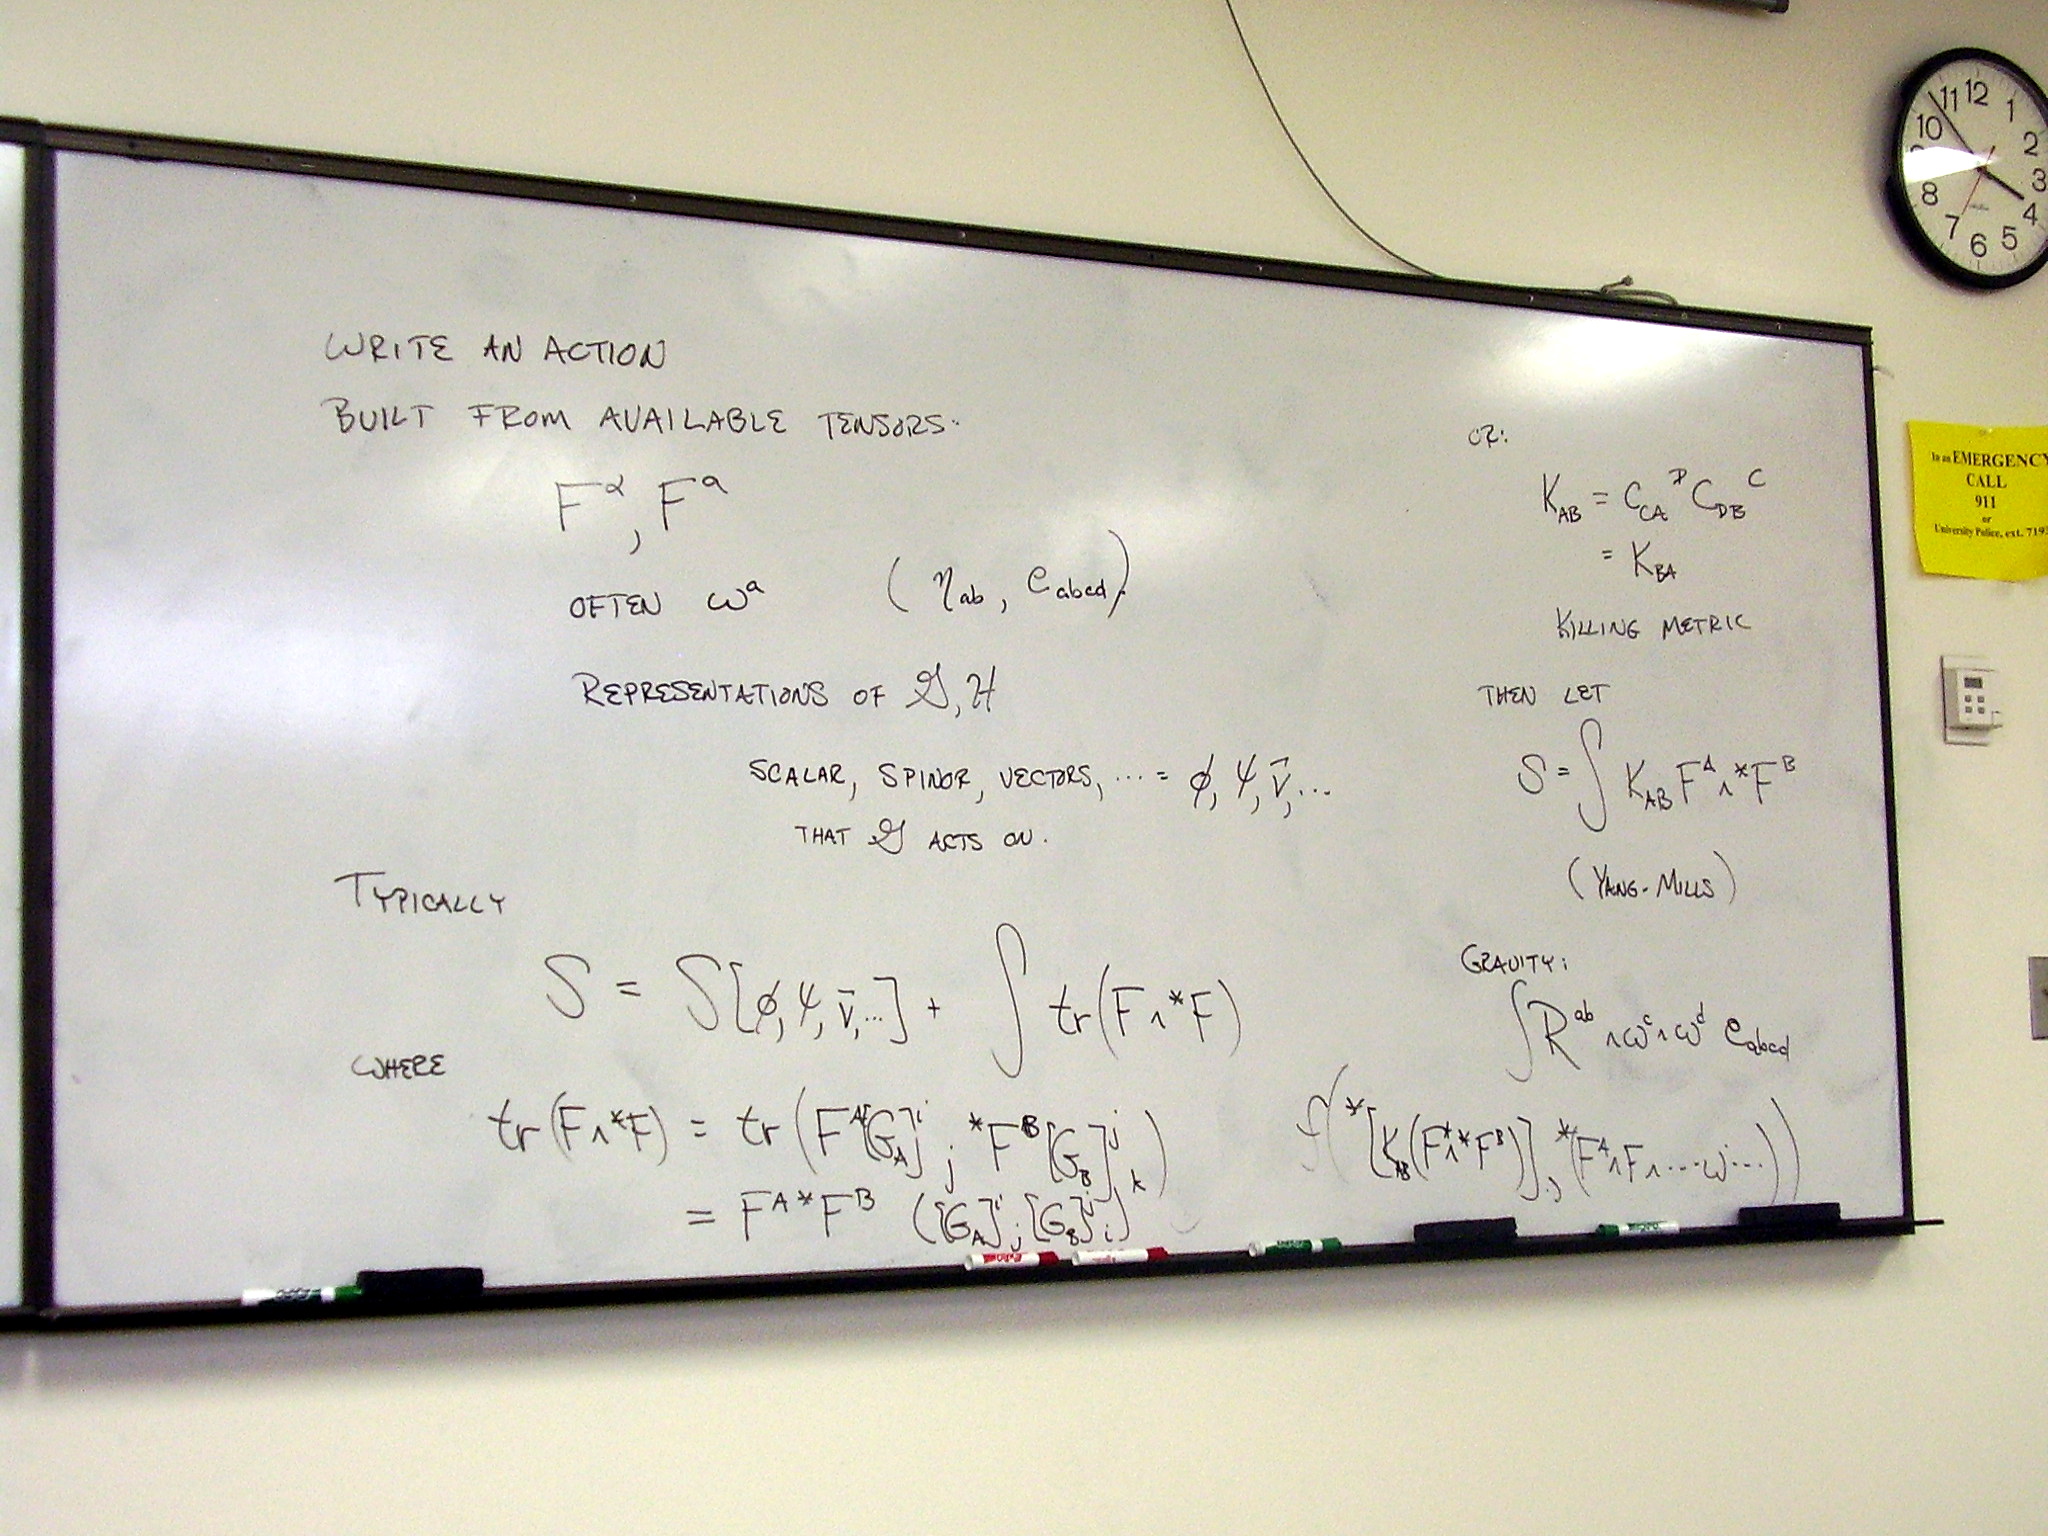 WRITE AN ACTION
BUILT FROM AVAILABLE TENSORS.
F^α, F^a
OFTEN ω^a (η_ab, e_abcd)
REPRESENTATIONS OF 𝒢, ℋ
SCALAR, SPINOR, VECTORS, ... = φ, ψ, v̄, ...
THAT 𝒢 ACTS ON.
TYPICALLY
S = S[φ, ψ, v̄, ...] + ∫ tr(F ∧ *F)
WHERE
tr(F ∧ *F) = tr(F^A [G_A]^i_j *F^B [G_B]^j_k)
= F^A *F^B ([G_A]^i_j [G_B]^j_i)
OR:
K_AB = C_CA^D C_DB^C
= K_BA
KILLING METRIC
THEN LET
S = ∫ K_AB F^A ∧ *F^B
(YANG-MILLS)
GRAVITY:
∫ R^ab ∧ ω^c ∧ ω^d e_abcd
f(*[K_AB(F^A ∧ *F^B)], *(F^A ∧ F ∧ ... ω ...))
12
1
2
3
4
5
6
7
8
10
11
In an EMERGENCY
CALL
911
or
University Police, ext. 719